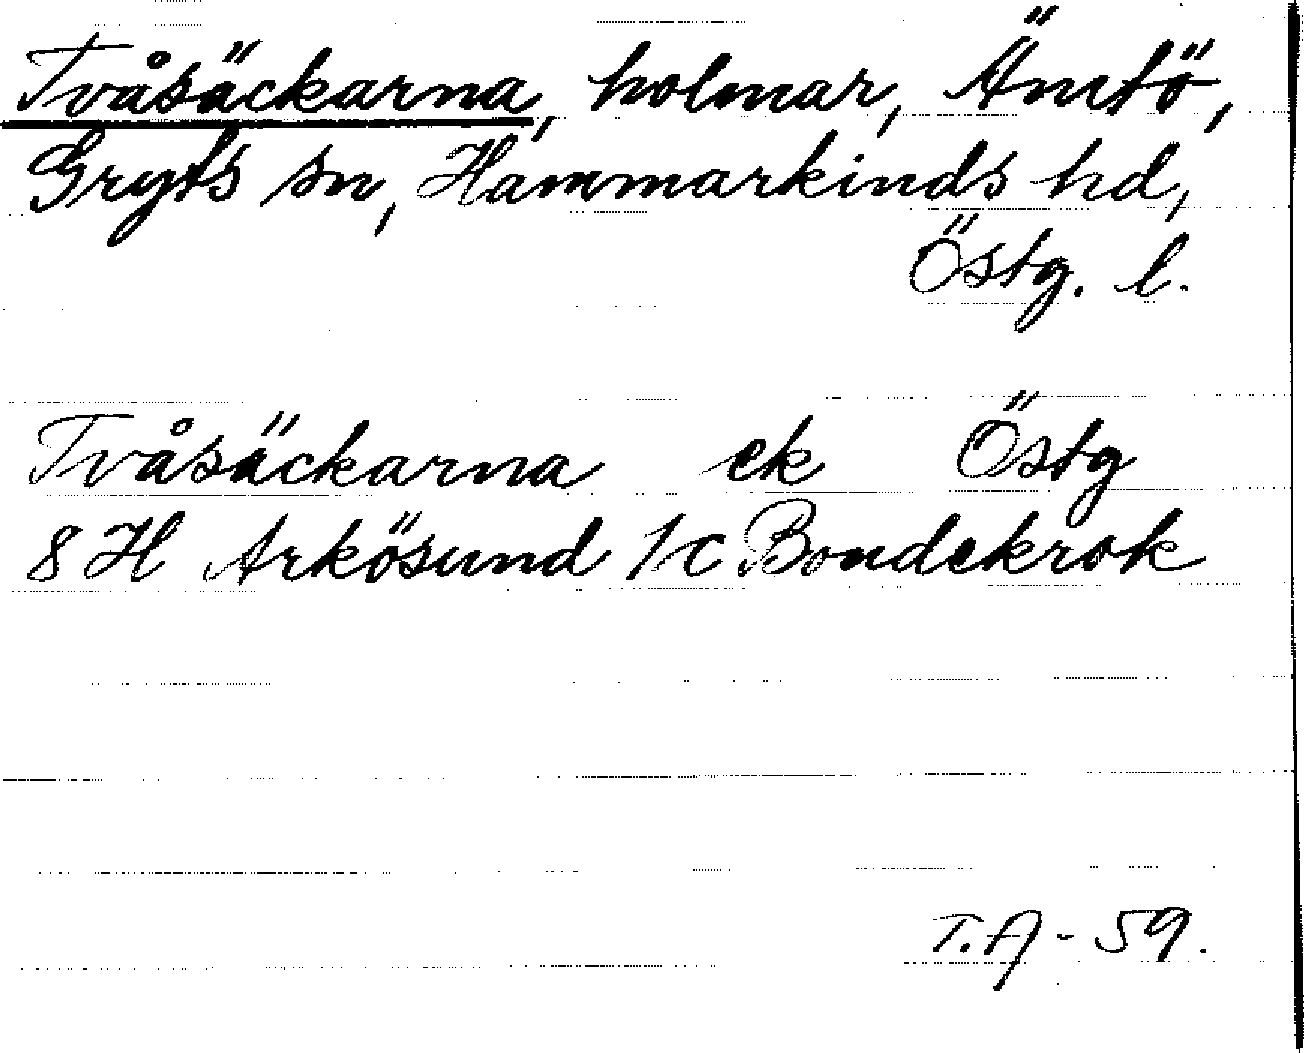 Tvåsäckarna, holmar, Ämtö,
Gryts sn, Hammarkinds hd,
Östg. l.
Tvåsäckarna ek Östg
8 H Arkösund 1c Bondekrok
T.A - 59.